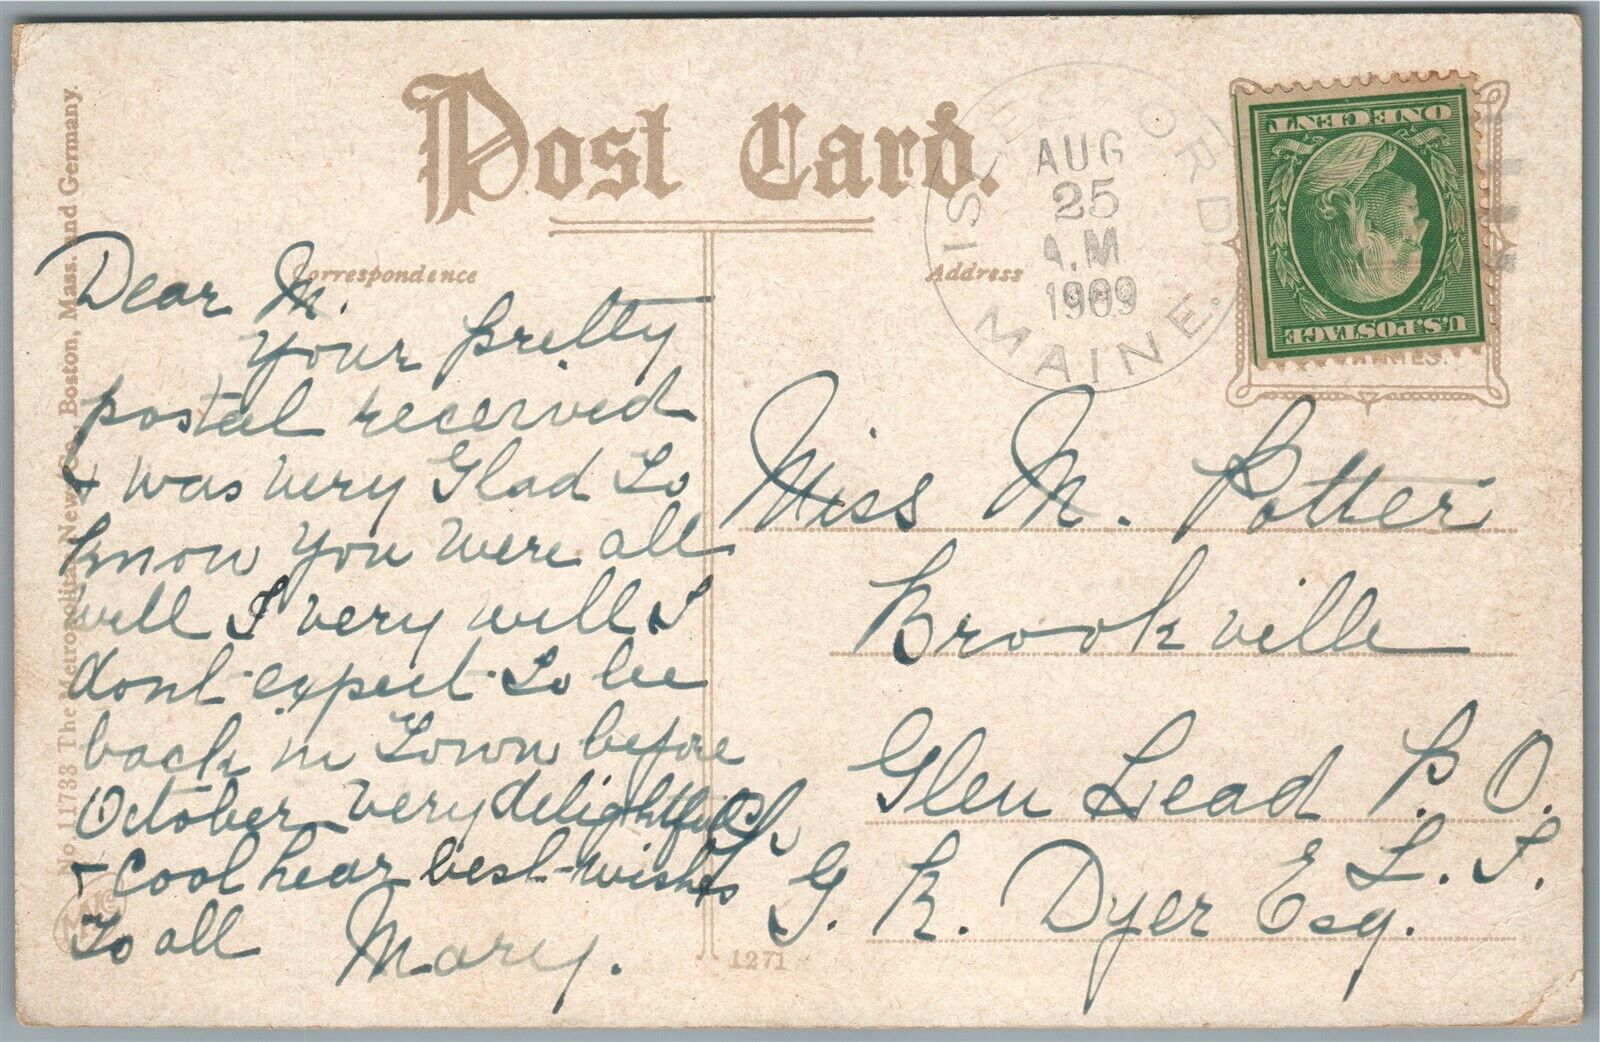 Post Card.
Correspondence
Address
No 11733 The Metropolitan News Co., Boston, Mass. and Germany.
ISLESFORD.
AUG
25
A.M
1909
MAINE.
U.S.POSTAGE
ONE CENT
Dear M.
Your pretty
postal received
& was very Glad to
know you were all
well I very well I
dont expect to be
back in Town before
October very delightful
& cool hear best wishes
to all Mary.
Miss M. Potter
Brookville
Glen Head P. O.
L. I.
% G. R. Dyer Esq.
1271